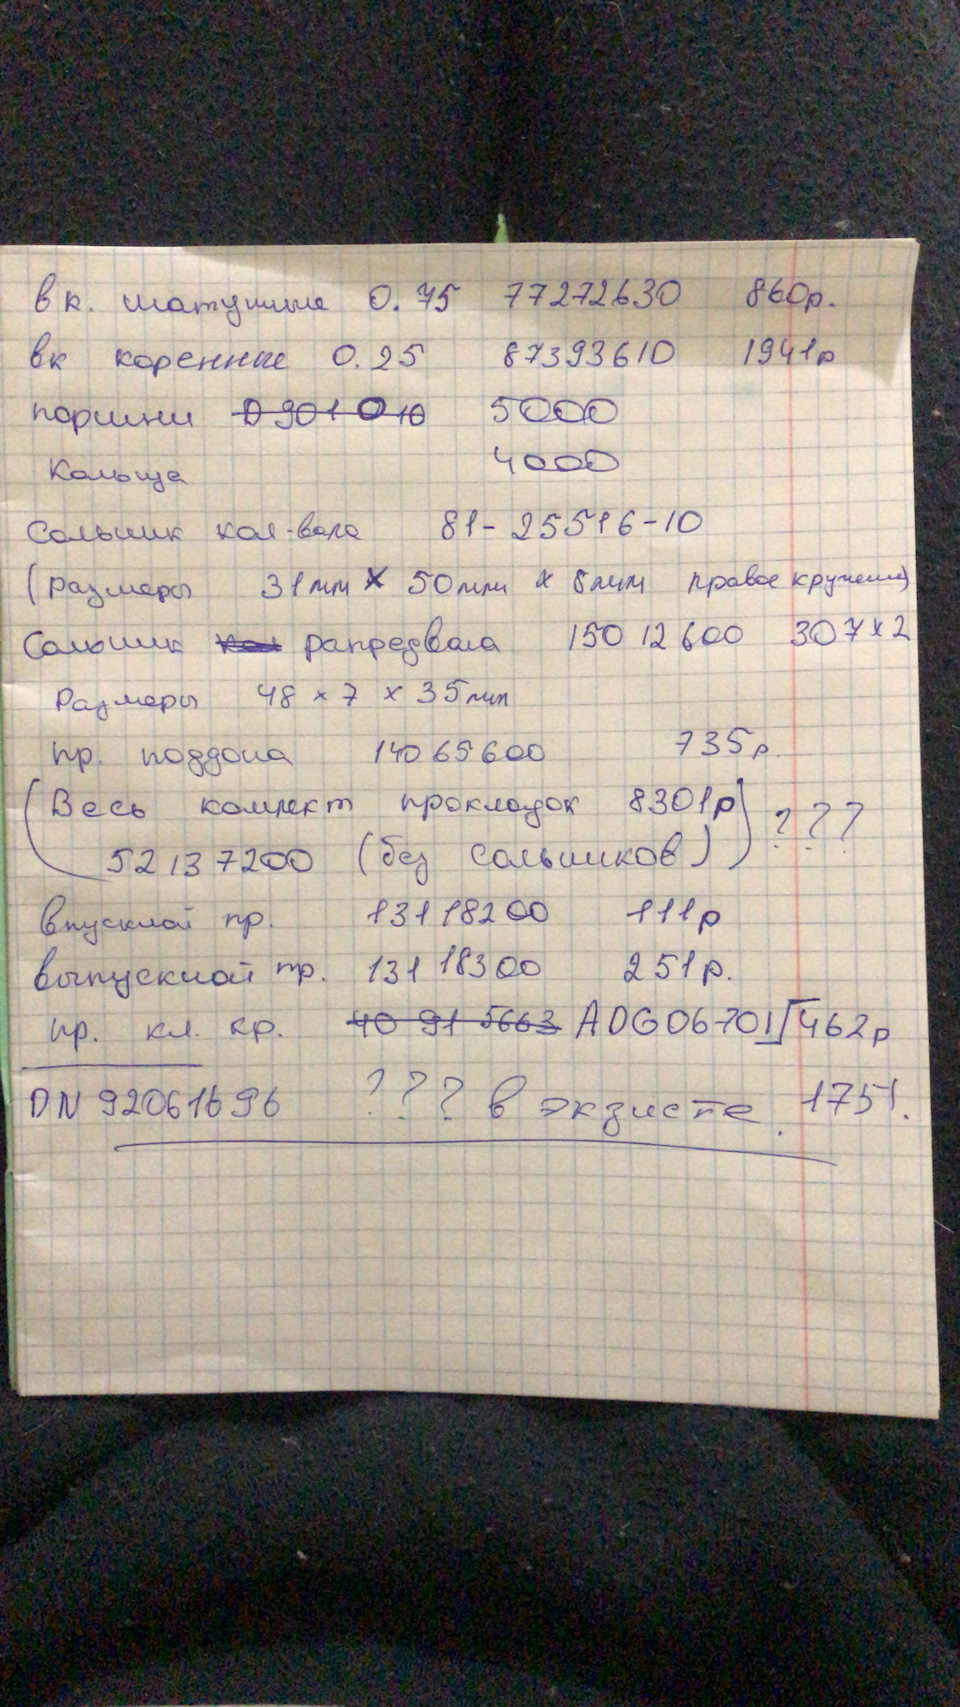 вк. шатунные 0.75 77272630 860р.
вк коренные 0.25 87393610 1941р
поршни 5000
Кольца 4000
Сальник кол-вала 81-25516-10
(размеры 31мм х 50мм х 8мм правое кружение)
Сальник рапредвала 15012600 307х2
Размеры 48 х 7 х 35мм
пр. поддона 14065600 735р.
(Весь комлект прокладок 8301р
52137200 (без сальников)) ???
впускной пр. 13118200 111р
выпускной пр. 13118300 251р.
пр. кл. кр. 40 91 5663 ADG06701 462р
DN 92061696 ??? в экзисте. 1751.